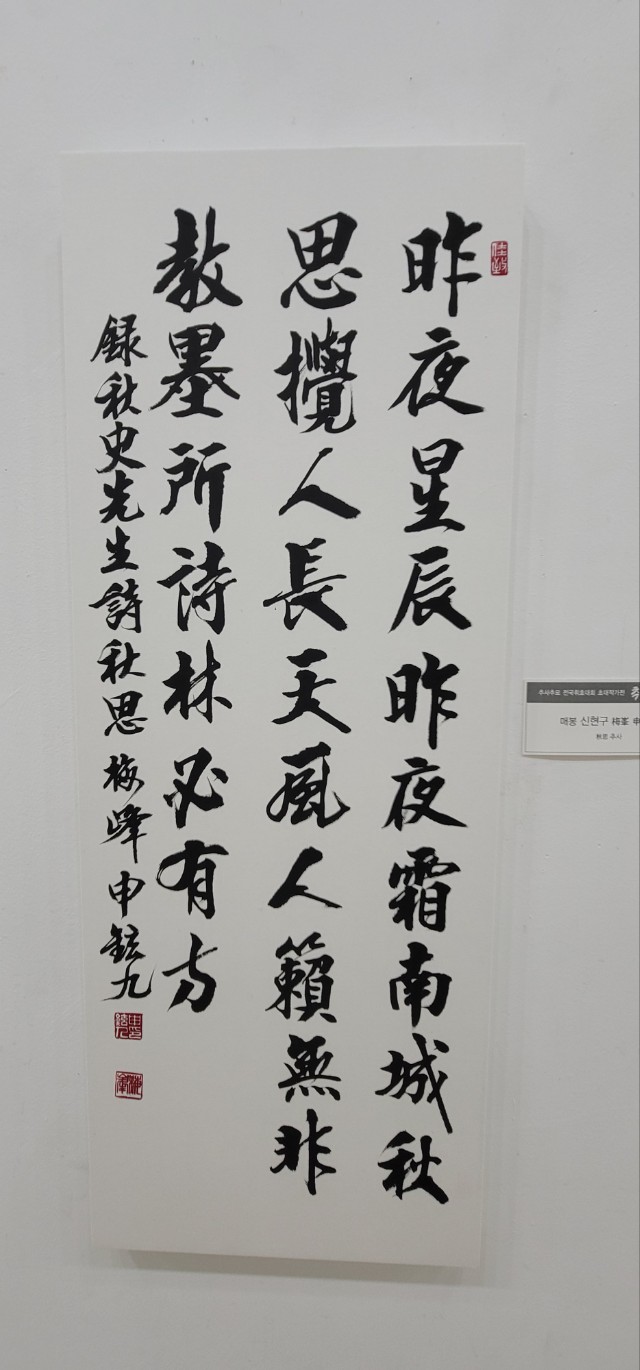 昨夜星辰昨夜霜南城秋
思攪人長天風人籟無非
教墨所詩林必有方
録秋史先生詩秋思 梅峰申鉉九
추사추모 전국휘호대회 초대작가전
매봉 신현구 梅峯 申
秋思 추사